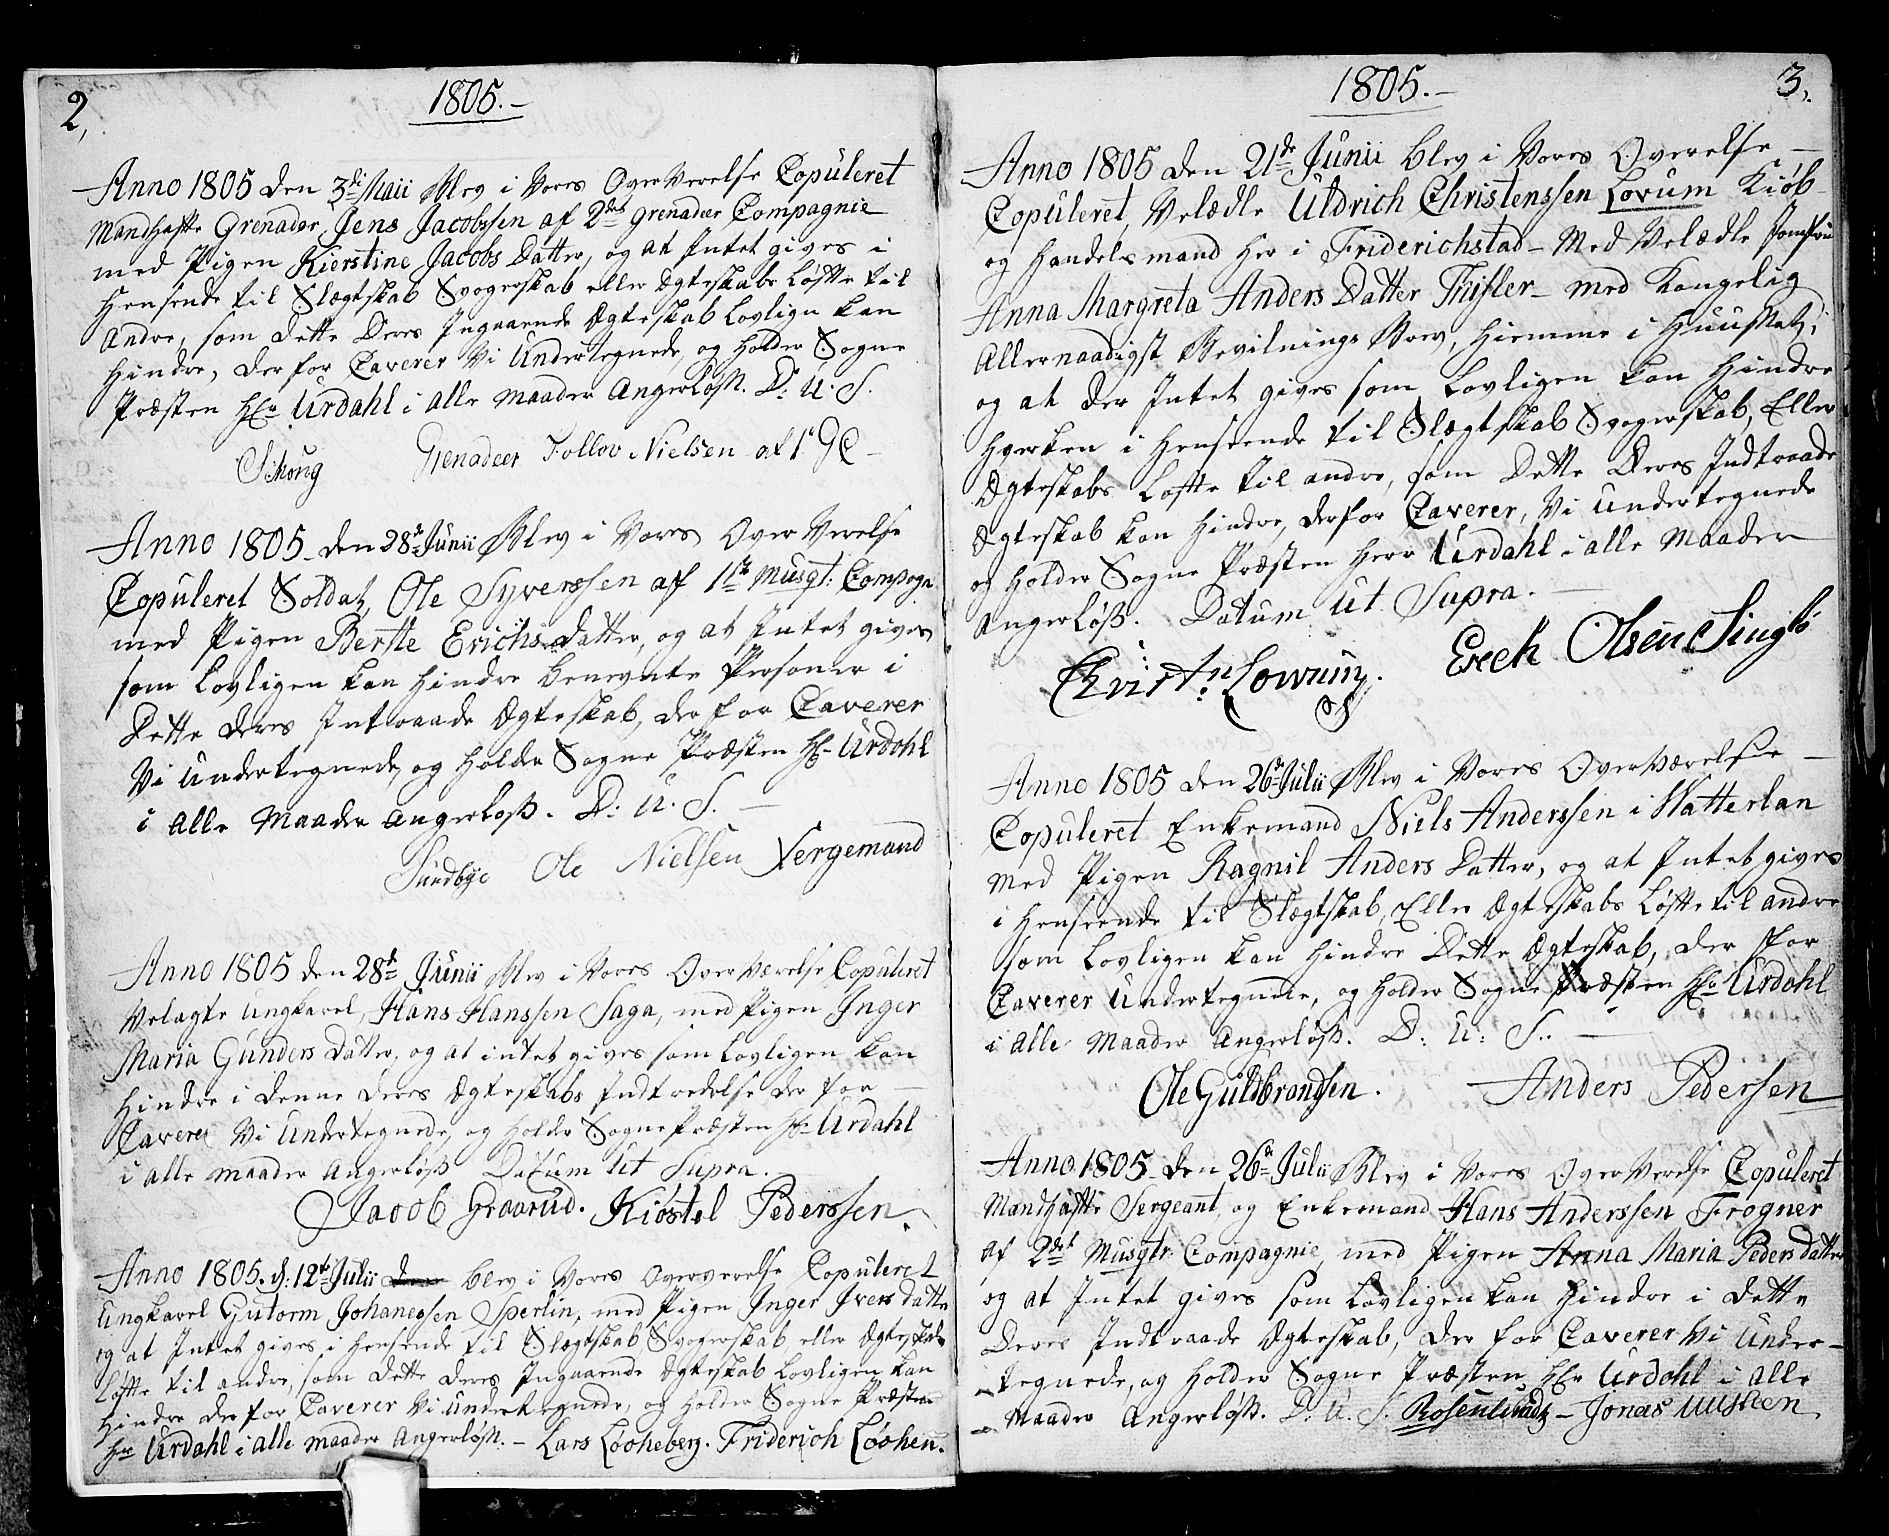 2,
1805.-
Anno 1805 den 3di Maii Blev i Vores OverVerelse Copuleret
Mandhafte Grenader, Jens Jacobssen af 2det Grenadeer Compagnie
med Pigen Kierstine Jacobs Datter, og at Intet gives i
Hensende til Slægtskab Svogerskab eller Ægteskabs Løfte til
Andre, som dette Deres Ingaaende Ægteskab Lovlign kan
Hindre, derfor Caverer Vi Undertegnede, og holder Sogne
Præsten Hr. Urdahl i alle Maader Angerløss. D: U. S.
Schoug Grenadeer Tollov Nielsen af 1te GC -
Anno 1805 - den 28de Junii Blev i Vores OverVerelse
Copuleret Soldat, Ole Syverssen af 1ste Musqt: Compagn
med Pigen Berthe Erichs datter, og at Intet gives
som Lovligen kan Hindre benevnte Personer i
Dette deres Intraade Ægteskab, derfor Caverer
Vi Undertegnede, og Holder Sogne Præsten Hr. Urdahl
i Alle Maader Angerløss. D: U. S. -
Sundbye Ole Nielsen Fergemand
Anno 1805 den 28de Junii Blev i Vores OverVærelse Copuleret
Velagte Ungkarel, Hans Hanssen Saga, med Pigen Inger
Maria Gunders datter, og at intet gives som Lovligen kan
Hindre i denne deres Ægteskabs Indtredelse der for -
Caverer Vi Undertegnede, og Holder Sogne Præsten Hr. Urdahl
i alle maader Angerløss Datum Ut Supra. -
Jacob Graarud. Kiøstel Pederssen.
Anno 1805. d: 12te Julii blev i Vores Oververelse Copuleret
Ungkarel Gutorm Johanessen Sperlin, med Pigen Inger Ivers datter
og at Intet gives, i Hensende til Slægtskab Svogerskab, eller Ægteskabs
Løfte til andre, som dette deres Ingaaende Ægteskab Lovligen kan
Hindre der for Caverer Vi Undertegnede, og Holder Sogne Præsten
Hr Urdahl i alle maader Angerløss. - Lars Løcheberg. Friderich Løchen.
3,
1805.-
Anno 1805 den 21de Junii blev i Vores Overelse -
Copuleret, Velædle Uldrich Christenssen Lorum Kiøb
og Handelsmand her i Friderichstad - Med Velædle Jomfrue
Anna Margreta Anders Datter Thisler - med Kongelig
Allernaadigst Bevilnings Brev, Hiemme i Huuset,
og at der Intet gives som Lovligen kan Hindre
Hverken i Henseende til Slægtskab Svogerskab, Eller
Ægteskabs Løfte til andre, som Dette Deres Indtraade
Ægteskab kan Hindre, derfor Caverer, Vi Undertegnede
og Holder Sogne Præsten Herr Urdahl i alle Maader
Angerløss. Datum Ut Supra. -
Christn: Lowum. Erech Olsen
Anno 1805 den 26de Julii Blev i Vores OverVærelse -
Copuleret Enkemand Niels Anderssen i Watterlan
med Pigen Ragnil Anders Datter, og at Intet gives
i Henseende til Slægtskab, Eller Ægteskabs Løfte til andre
som Lovligen kan Hindre Dette Ægteskab, der for
Caverer Undertegnede, og Holder Sogne Præsten Hr. Urdahl
i alle Maader Angerløss. D: U: S.. -
Ole Guldbrandsen. Anders Pedersen
Anno 1805 - den 26de Julii Blev i Vores OverVerelse Copuleret
Mandhafte Sergeant, og Enkemand Hans Anderssen Frogner
af 2det Musqtr: Compagnie, med Pigen Anna Maria Peders datter
og at Intet gives som Lovligen kan Hindre i dette
Deres Indtraade Ægteskab, der for Caverer Vi Under-
tegnede, og Holder Sogne Præsten Hr Urdahl i alle
Maader Angerløss. D. U. S. Rosenlund - Jonas